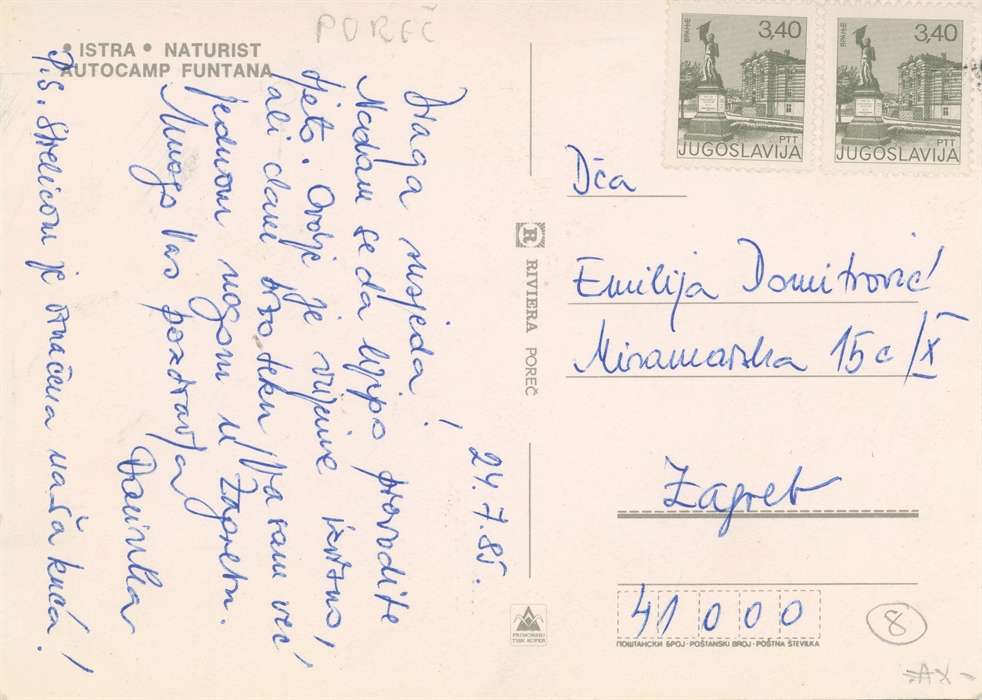 POREČ
• ISTRA • NATURIST
AUTOCAMP FUNTANA
24.7.85.
Draga susjeda!
Nadam se da lijepo provodite
ljeto. Ovdje je vrijeme izvrsno,
ali dani brzo teku pa sam već
jednom nogom u Zagrebu.
Mnogo Vas pozdravlja
Darinka
P.S. Strelicom je označena naša kuća!
RIVIERA POREČ
PRIMORSKI
TISK KOPER
ВРАЊЕ
3,40
PTT
JUGOSLAVIJA
ВРАЊЕ
3,40
PTT
JUGOSLAVIJA
Dča
Emilija Domitrović
Miramarska 15c/X
Zagreb
41000
ПОШТАНСКИ БРОЈ · POŠTANSKI BROJ · POŠTNA ŠTEVILKA
8